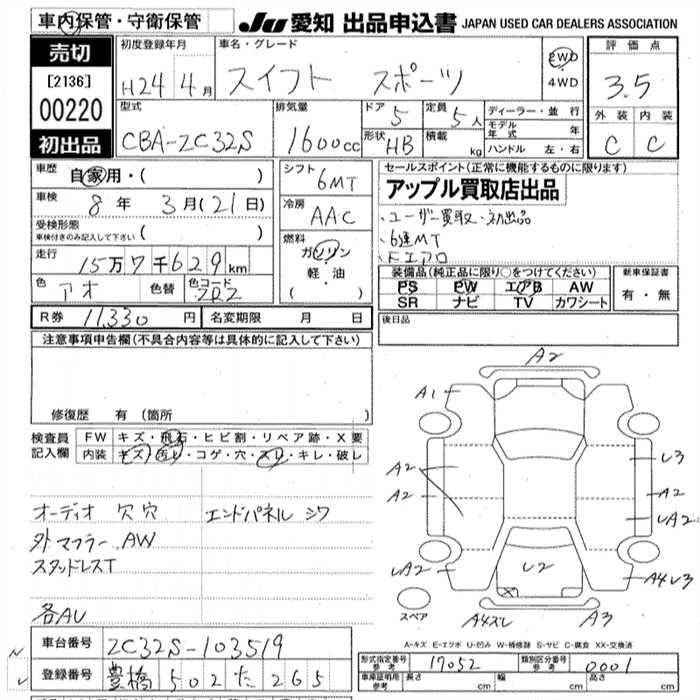 車内保管・守衛保管
JU 愛知 出品申込書 JAPAN USED CAR DEALERS ASSOCIATION
売切
[2136]
00220
初出品
初度登録年月
H24年4月
車名・グレード
スイフト スポーツ
2WD
4WD
評価点
3.5
外装 内装
C C
型式
CBA-ZC32S
排気量
1600cc
ドア
5
定員
5人
形状
HB
積載
kg
ディーラー・並行
モデル年式 年
ハンドル 左・右
車歴
自家用・( )
車検
8年 3月(21日)
受検形態
車検付きのみ記入して下さい ( )
走行
15万7千629km
色
アオ
色替
色コード
ZPZ
シフト
6MT
冷房
AAC
燃料
ガソリン
軽・油
( )
セールスポイント(正常に機能するものに限ります)
アップル買取店出品
・ユーザー買取・初出品
・6速MT
・Fエアロ
装備品(純正品に限り○をつけてください)
PS PW エアB AW
SR ナビ TV カワシート
新車保証書
有・無
R券 11,330円
名変期限 月 日
後日品
注意事項申告欄(不具合内容等は具体的に記入して下さい)
修復歴 有(箇所 )
検査員記入欄
FW キズ・飛石・ヒビ割・リペア跡・X要
内装 キズ・汚レ・コゲ・穴・スレ・キレ・破レ
オーディオ欠穴 エンドパネルシワ
外マフラー AW
スタッドレスT
各AU
A2
A1
A2
A2
U3
A2
UA2
UA2
U2
A4U3
A4ズレ
A3
スペア
A-キズ E-エクボ U-凹み W-補修跡 S-サビ C-腐食 XX-交換済
車台番号 ZC32S-103519
登録番号 豊橋 502 た 265
形式指定番号 参考 17052
類別区分番号 参考 0001
車庫証明用 参考 長さ cm 幅 cm 高さ cm